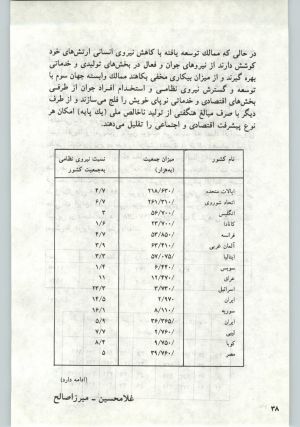 در حالی که ممالک توسعه یافته با کاهش نیروی انسانی ارتش‌های خود
کوشش دارند از نیروهای جوان و فعال در بخش‌های تولیدی و خدماتی
بهره گیرند و از میزان بیکاری مخفی بکاهند ممالک وابسته جهان سوم با
توسعه و گسترش نیروی نظامی و استخدام افراد جوان از طرفی
بخش‌های اقتصادی و خدماتی نوپای خویش را فلج می‌سازند و از طرف
دیگر با صرف مبالغ هنگفتی از تولید ناخالص ملی (یک پایه) امکان هر
نوع پیشرفت اقتصادی و اجتماعی را تقلیل می‌دهند.
نام کشور میزان جمعیت نسبت نیروی نظامی
(به‌هزار) به‌جمعیت کشور
ایالات متحده ۲۱۸/۶۳۰/ ۴/۷
اتحاد شوروی ۲۶۱/۳۱۰/ ۶/۷
انگلیس ۵۶/۷۰۰/ ۳
کانادا ۲۳/۷۰۰/ ۱/۶
فرانسه ۵۳/۸۵۰/ ۴/۷
آلمان غربی ۶۳/۴۱۰/ ۳/۹
ایتالیا ۵۷/۰۷۵/ ۳/۳
سویس ۶/۴۴۰/ ۱/۴
عراق ۱۲/۴۷۰/ ۱۱
اسرائیل ۳/۷۳۰/ ۲۳/۳
ایران ۲/۹۷۰ ۱۴/۵
سوریه ۸/۱۱۰/ ۱۶/۱
ایران ۳۶/۳۶۵/ ۵/۹
لیبی ۲/۷۶۰/ ۷/۷
کوبا ۹/۷۵۰/ ۸/۴
مصر ۳۹/۷۶۰/ ۵
(ادامه دارد)
غلامحسین - میرزاصالح
۳۸